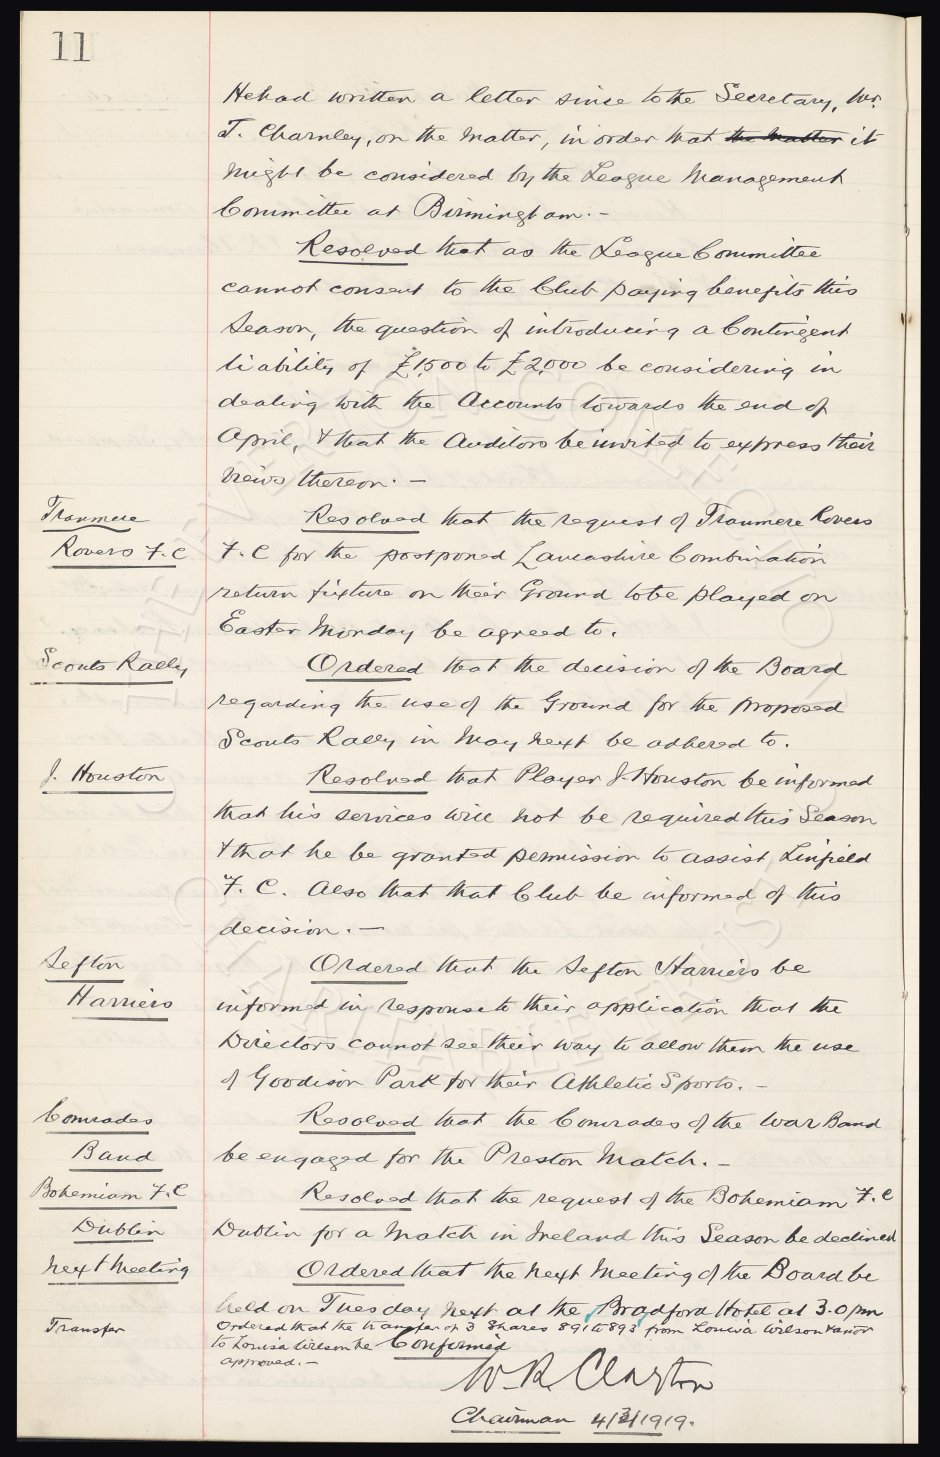 11
He had written a letter since to the Secretary, Mr.
T. Charnley, on the matter, in order that the matter it
might be considered by the League Management
Committee at Birmingham. -
Resolved that as the League Committee
cannot consent to the Club paying benefits this
Season, the question of introducing a Contingent
liability of £1,500 to £2,000 be considering in
dealing with the Accounts towards the end of
April, & that the Auditors be invited to express their
views thereon. -
Tranmere
Rovers F.C
Resolved that the request of Tranmere Rovers
F.C for the postponed Lancashire Combination
return fixture on their Ground to be played on
Easter Monday be agreed to.
Scouts Rally
Ordered that the decision of the Board
regarding the use of the Ground for the proposed
Scouts Rally in May next be adhered to.
J. Houston
Resolved that Player J. Houston be informed
that his services will not be required this Season
& that he be granted permission to assist Linfield
F.C. Also that that Club be informed of this
decision. -
Sefton
Harriers
Ordered that the Sefton Harriers be
informed in response to their application that the
Directors cannot see their way to allow them the use
of Goodison Park for their Athletic Sports. -
Comrades
Band
Resolved that the Comrades of the War Band
be engaged for the Preston Match. -
Bohemiam F.C
Dublin
Resolved that the request of the Bohemiam F.C
Dublin for a Match in Ireland this Season be declined
Next Meeting
Ordered that the next Meeting of the Board be
held on Tuesday next at the Bradford Hotel at 3.0 pm
Transfer
Ordered that the transfer of 3 Shares 891 to 893 from Louisa Wilson & anor
to Louisa Wilson be
approved. -
Confirmed
W. R. Clayton
Chairman 4/3/1919.